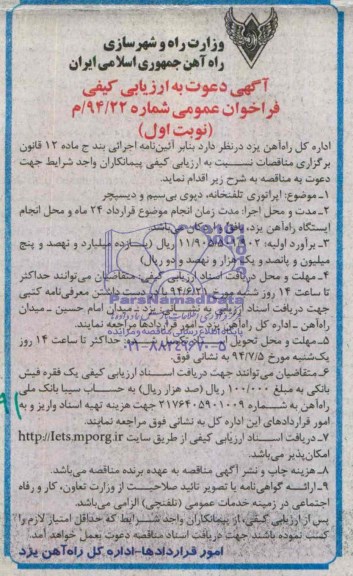 وزارت راه و شهرسازی
راه آهن جمهوری اسلامی ایران
آگهی دعوت به ارزیابی کیفی
فراخوان عمومی شماره ۹۴/۲۲/م
(نوبت اول)
اداره کل راه‌آهن یزد درنظر دارد بنابر آئین‌نامه اجرائی بند ج ماده ۱۲ قانون
برگزاری مناقصات نسبت به ارزیابی کیفی پیمانکاران واجد شرایط جهت
دعوت به مناقصه به شرح زیر اقدام نماید.
۱ـ موضوع: اپراتوری تلفنخانه، دپوی بی‌سیم و دیسپچر
۲ـ مدت و محل اجرا: مدت زمان انجام موضوع قرارداد ۲۴ ماه و محل انجام
ایستگاه راه‌آهن یزد، بافق و اردکان می‌باشد.
۳ـ برآورد اولیه: ریال (یازده میلیارد و نهصد و پنج
میلیون و پانصد و یک هزار و نهصد و دو ریال)
۴ـ مهلت و محل دریافت اسناد ارزیابی کیفی: متقاضیان می‌توانند حداکثر
تا ساعت ۱۴ روز شنبه مورخ ۹۴/۶/۲۱ با در دست داشتن معرفی‌نامه کتبی
جهت دریافت اسناد ارزیابی به نشانی یزد ـ میدان امام حسین ـ میدان
راه‌آهن ـ اداره کل راه‌آهن یزد ـ امور قراردادها مراجعه نمایند.
۵ـ مهلت و محل تحویل اسناد حداکثر تا ساعت ۱۴ روز
یک‌شنبه مورخ ۹۴/۷/۵ به نشانی فوق.
۶ـ متقاضیان می‌توانند جهت دریافت اسناد ارزیابی کیفی یک فقره فیش
بانکی به مبلغ ۱۰۰/۰۰۰ ریال (صد هزار ریال) به حساب سیبا بانک ملی
راه‌آهن به شماره ۲۱۷۶۴۰۵۹۰۱۰۰۹ جهت هزینه تهیه اسناد واریز و به
امور قراردادهای این اداره کل به نشانی فوق مراجعه نمایند.
۷ـ دریافت اسناد ارزیابی کیفی از طریق سایت http://Iets.mporg.ir
امکان‌پذیر می‌باشد.
۸ـ هزینه چاپ و نشر آگهی مناقصه به عهده برنده مناقصه می‌باشد.
۹ـ ارائه گواهی‌نامه یا تصویر تائید صلاحیت از وزارت تعاون، کار و رفاه
اجتماعی در زمینه خدمات عمومی (تلفنچی) الزامی می‌باشد.
پس از ارزیابی کیفی، از پیمانکاران واجد شرایط که حداقل امتیاز لازم را
کسب نموده باشند جهت دریافت اسناد مناقصه دعوت بعمل خواهد آمد.
امور قراردادها-اداره کل راه‌آهن یزد
ParsNamadData
۰۲۱-۸۸۳۴۹۶۷۰-۵